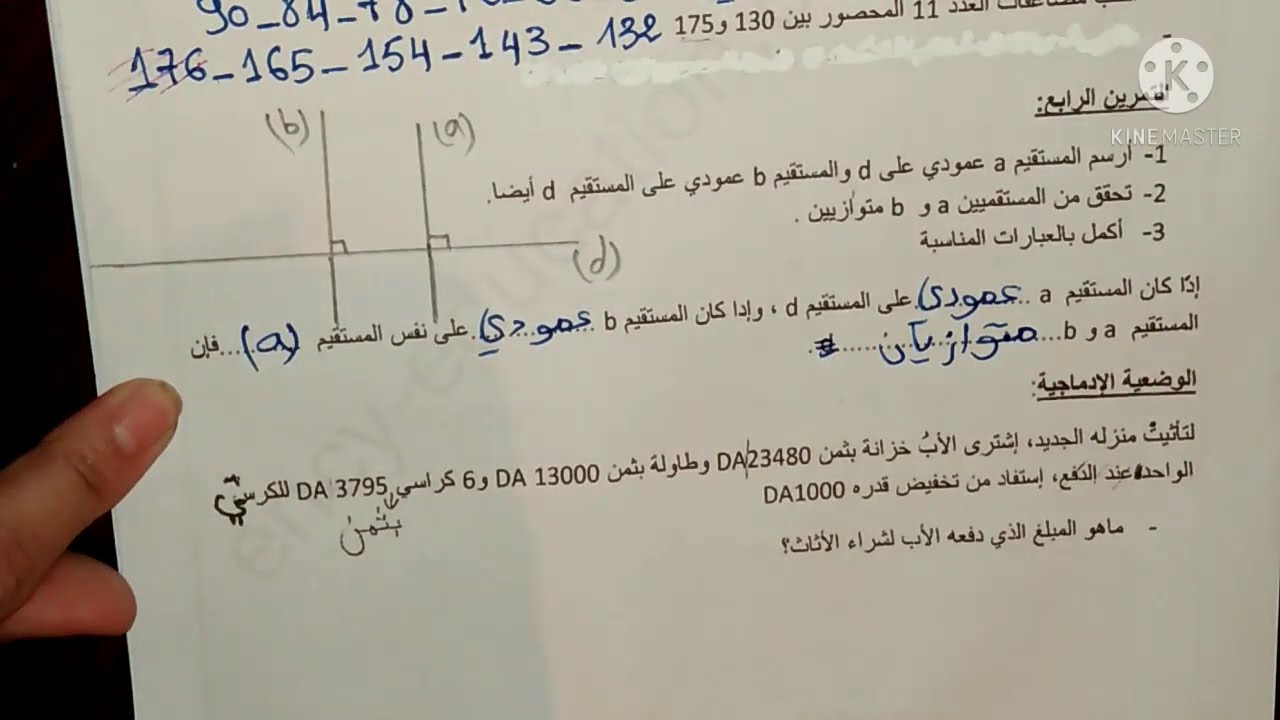 90 - 84 - 78 -
العدد 11 المحصور بين 130 و175
176 - 165 - 154 - 143 - 132
KINEMASTER
التمرين الرابع:
(b) (a)
1- أرسم المستقيم a عمودي على d والمستقيم b عمودي على المستقيم d أيضا.
2- تحقق من المستقميين a و b متوازيين .
3- أكمل بالعبارات المناسبة
(d)
إدّا كان المستقيم a ..عمودي.على المستقيم d ، وإدا كان المستقيم b ..عمودي..على نفس المستقيم (a)...فإن
المستقيم a و b...متوازيان......
الوضعية الإدماجية:
لتأثيث منزله الجديد، إشترى الأبُ خزانة بثمن DA23480 وطاولة بثمن DA 13000 و6 كراسي DA 3795 للكرسيّ
بثمن
الواحد عند الدفع، إستفاد من تخفيض قدره DA1000
- ماهو المبلغ الذي دفعه الأب لشراء الأثاث؟